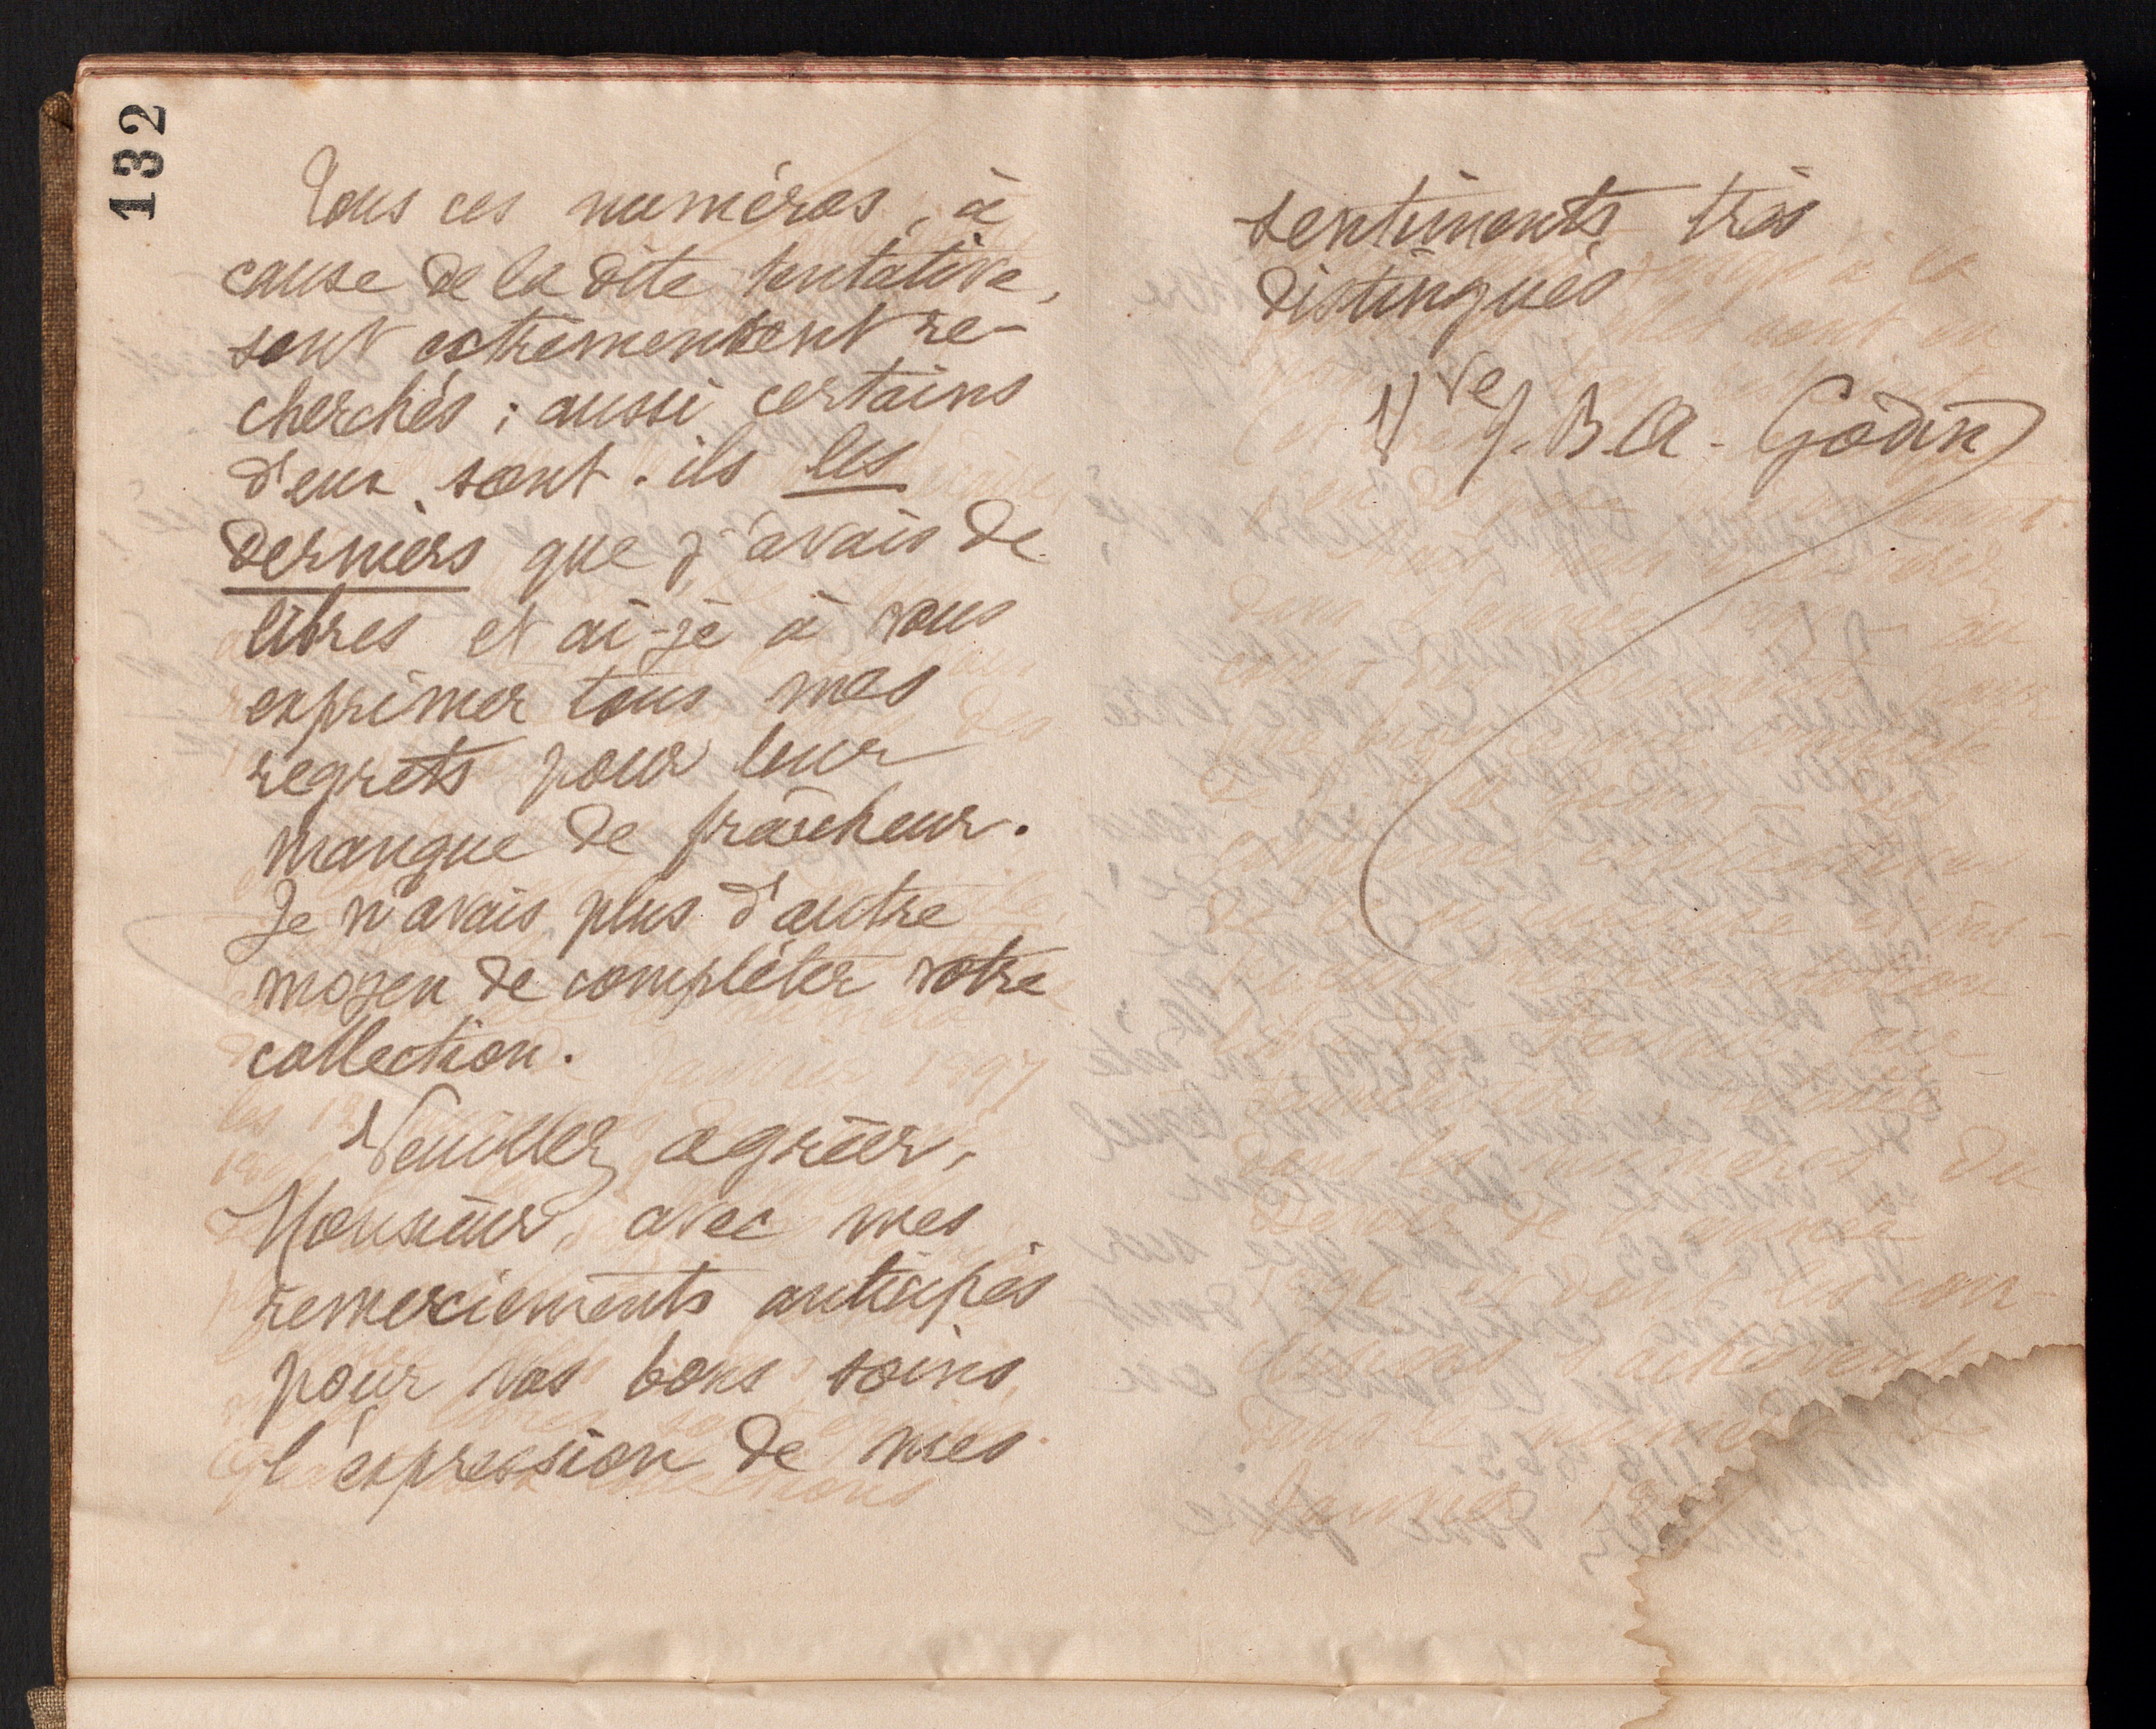 132
Tous ces numéros, à
cause de la dite tentative,
sont extrêmement re-
cherchés ; aussi certains
d'eux sont-ils les
derniers que j'avais de
libres et ai-je à vous
exprimer tous mes
regrets pour leur
manque de fraîcheur.
Je n'avais plus d'autre
moyen de compléter votre
collection.
Veuillez agréer,
Monsieur, avec mes
remerciements anticipés
pour vos bons soins,
l'expression de mes
sentiments très
distingués
Vve J. B. A. Godin